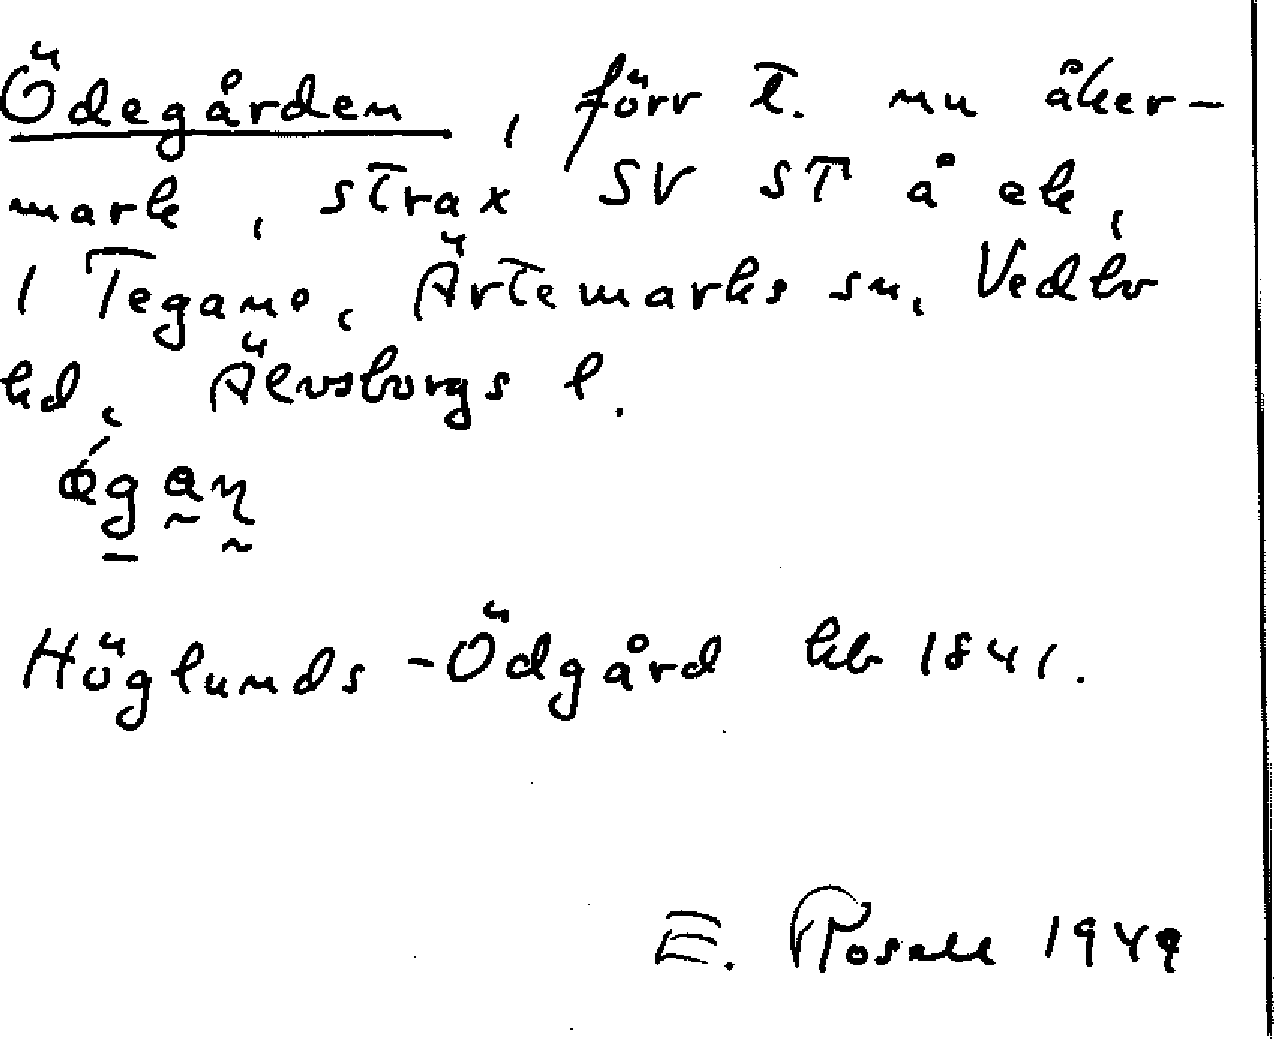 Ödegården, förr t. nu åker-
mark, strax SV ST å ek,
i Tegane, Ärtemarks sn, Vedbo
hd, Älvsborgs l.
Höglunds-Ödgård hb 1841.
E. Rosell 1949